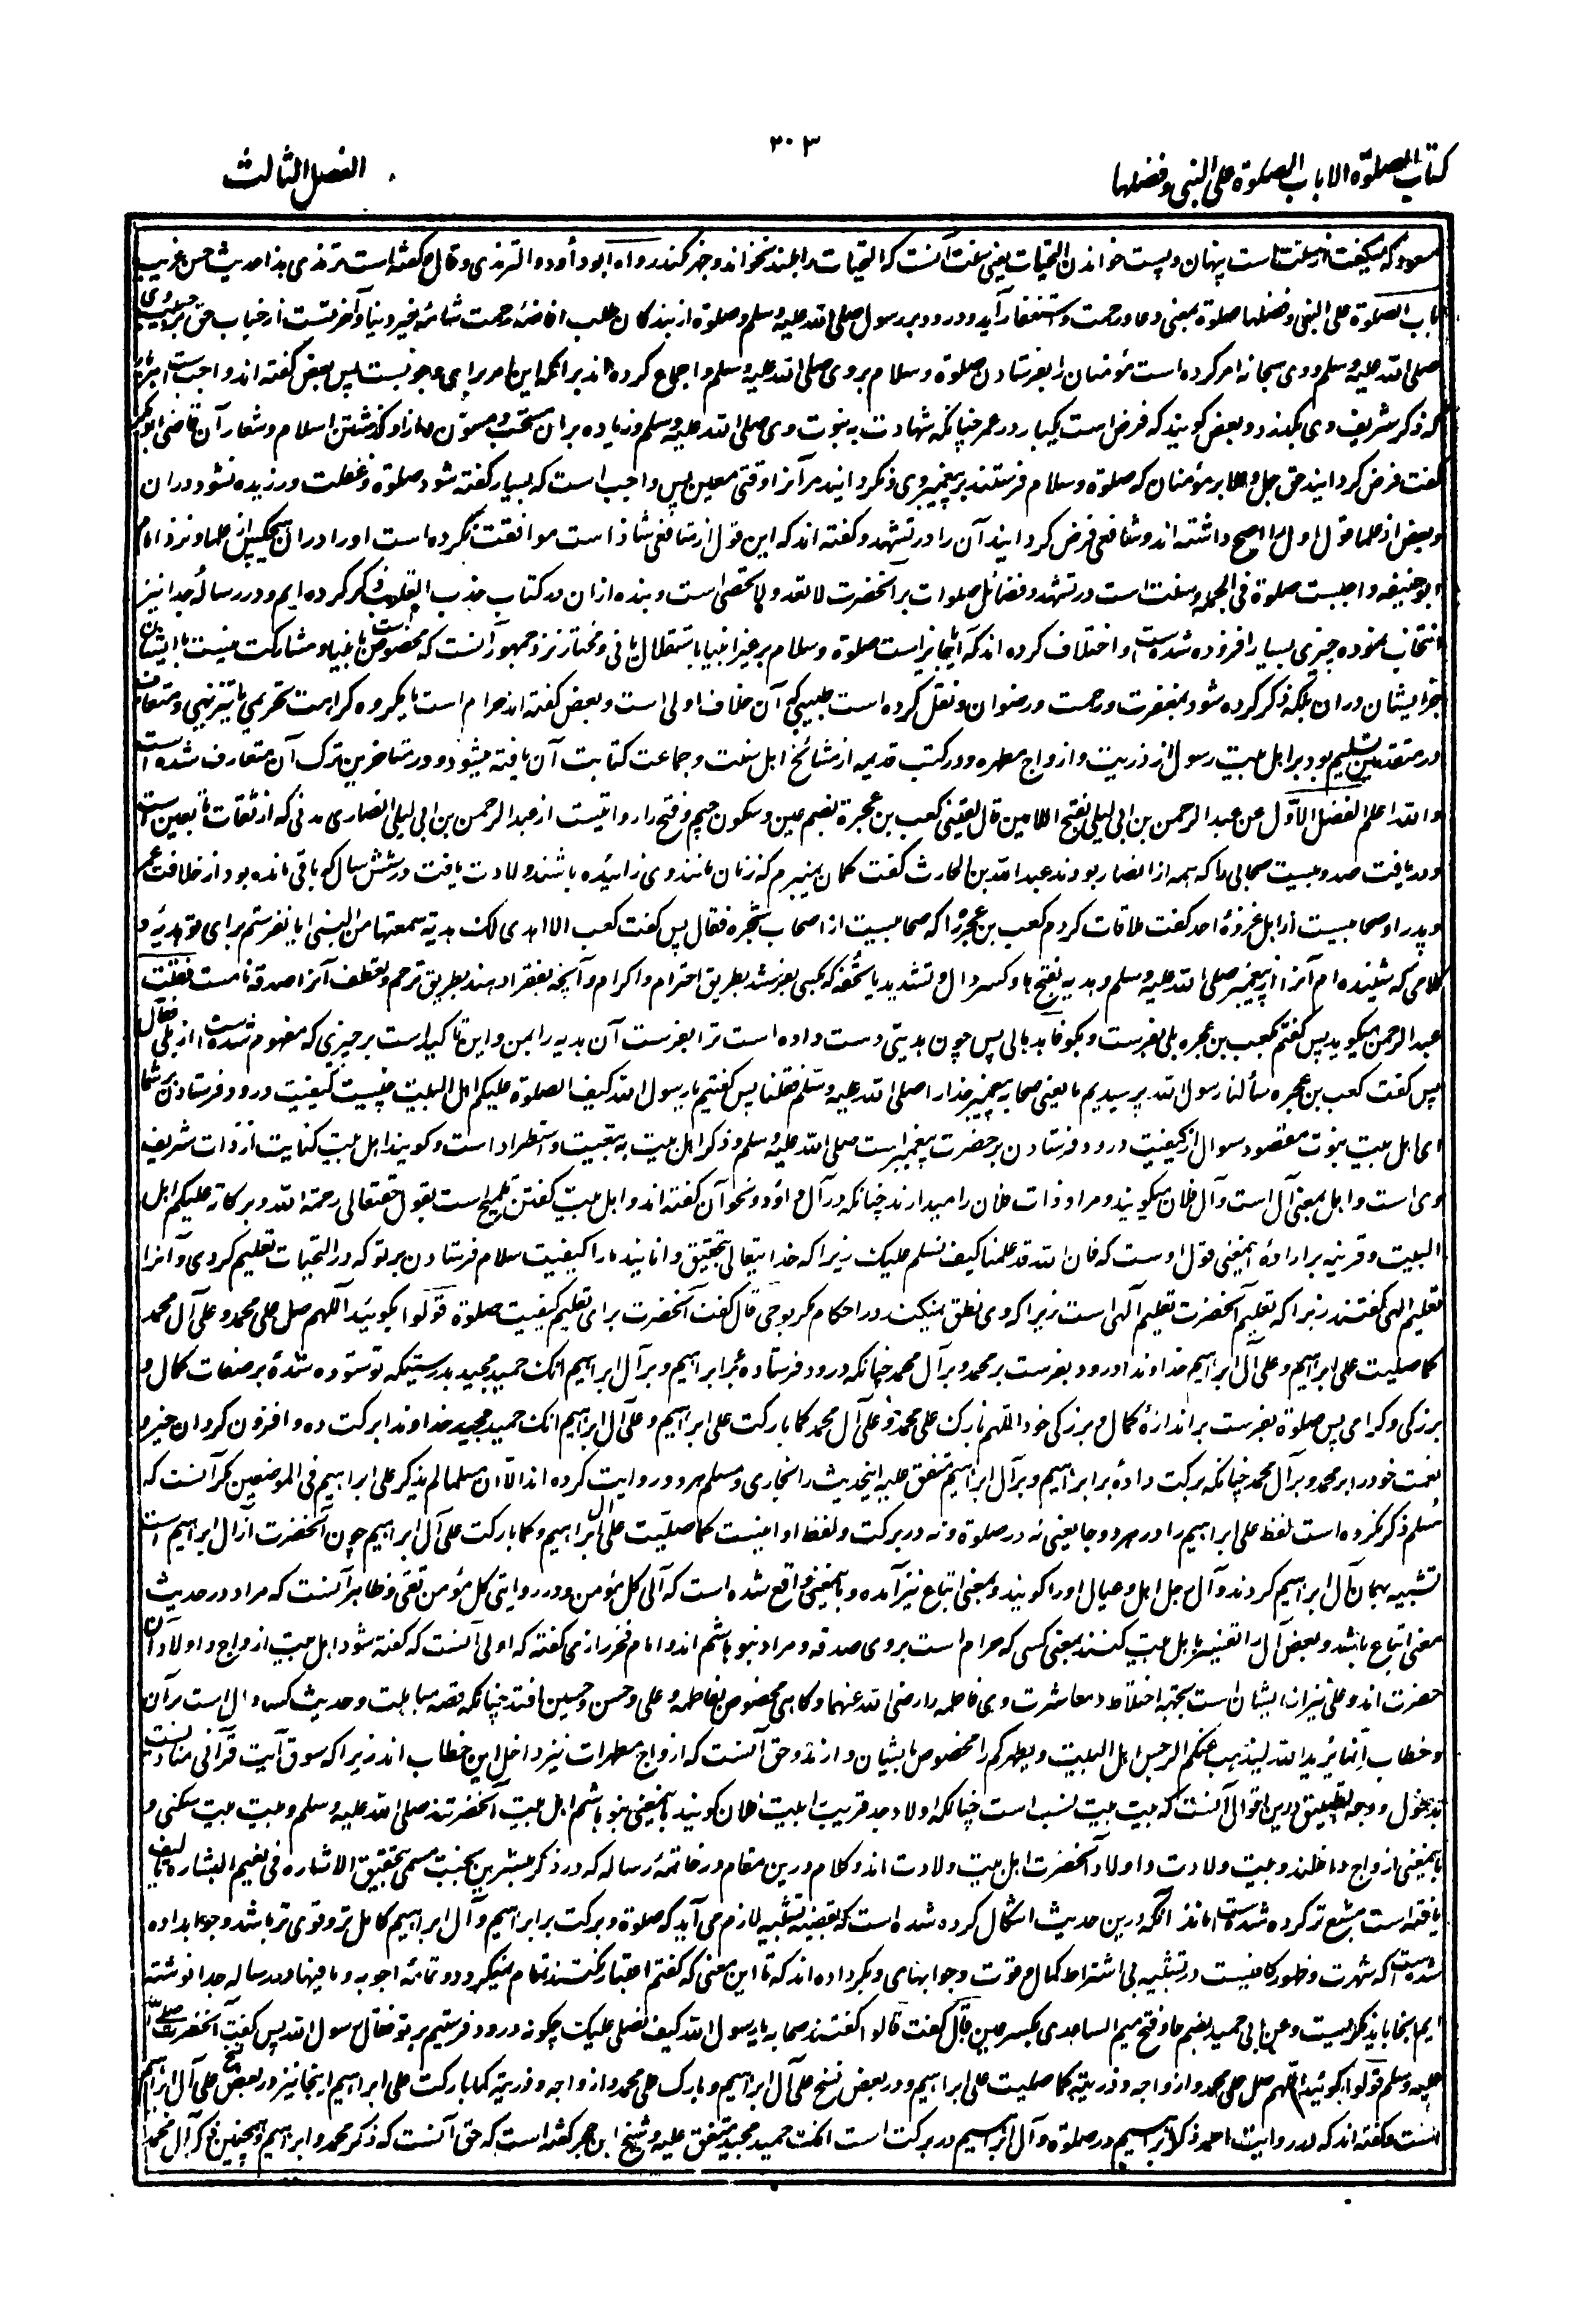 كتاب الصلوٰة الا باب الصلوة على النبى وفضلها
٣٠٣
الفصل الثالث
مسعود كه ميگفت از سنت است پنهان و پست خواندن التحيات يعنى سنت آنست كه التحيات را بلند نخواند و جهر نكند رواه ابو داؤد و الترمذى و قال و گفته است ترمذى هذا حديث حسن غريب
باب الصلوة على النبى وفضلها صلوة بمعنى دعا و رحمت و استغفار آيد و درود بر رسول صلى الله عليه وسلم و صلوة از بندگان طلب افاضهٔ رحمت شامله خير دنيا و آخرتست از جناب حق بر
صلى الله عليه وسلم و وى سبحانه امر كرده است مؤمنان را بفرستادن صلوة و سلام بر وى صلى الله عليه وسلم و اجماع كرده اند بر آنكه اين امر براى وجوبست پس بعض گفته اند واجب است
كه ذكر شريف وى بكند و بعض گويند كه فرض است يكبار در عمر چنانكه شهادت به نبوت وى صلى الله عليه وسلم و زياده بر آن مستحب و مسنون و شعار آن قاضى ابو بكر
گفت فرض گردانيد حق جل و علا بر مؤمنان كه صلوة و سلام فرستند بر پيغمبر وى و نگردانيد مر آنرا وقتى معين پس واجب است كه بسيار گفته شود صلوة و غفلت ورزيده نشود در آن
و بعض از علما قول اول را اصح داشته اند و شافعى فرض گردانيد آن را در تشهد و گفته اند كه اين قول از شافعى شاذ است موافقت نكرده است او را در آن هيچكس از علما و نزد امام
ابو حنيفه واجبست صلوة فى الجمله و سنت است در تشهد و فضائل صلوات بر آنحضرت لا تعد و لا تحصى است و بنده از ان در كتاب جذب القلوب ذكر كرده ايم و در رسالهٔ جدا نيز
انتخاب نموده چيزى بسيار افزوده شده است و اختلاف كرده اند كه آيا جائز است صلوة و سلام بر غير انبيا باستقلال يا نى و مختار نزد جمهور آنست كه مخصوص است بانبيا و مشاركت نيست با ايشان
جز ايشان در آن بلكه ذكر كرده شود بمغفرت و رحمت و رضوان و نقل كرده است طيبى كه آن خلاف اولى است و بعض گفته اند حرام است يا مكروه كراهت تحريمى يا تنزيهى و متعارف
در متقدمين تسليم بود بر اهل بيت رسول از ذريت و ازواج مطهره و در كتب قديمه از مشائخ اهل سنت و جماعت كتابت آن يافته ميشود و در متاخرين ترك آن متعارف شده است
و الله اعلم الفصل الاوّل عن عبد الرحمن بن ابى ليلى بفتح اللامين قال لقينى كعب بن عجرة بضم عين و سكون جيم و فتح را روايتيست از عبد الرحمن بن ابى ليلى انصارى مدنى كه از ثقات تابعين است
و دريافت صد و بيست صحابى را كه همه از انصار بودند عبد الله بن الحارث گفت گمان نميبرم كه زنان مانند وى زائيده باشند ولادت يافت در شش سال كه باقى مانده بود از خلافت عمر
و پدر او صحابيست از اهل غزوهٔ احد گفت ملاقات كردم كعب بن عجره را كه صحابيست از اصحاب شجره فقال پس گفت كعب الا اهدى لك هدية سمعتها من النبى آيا نفرستم براى تو هديهٔ و
كلامى كه شنيده ام آنرا از پيغمبر صلى الله عليه وسلم و هديه بفتح ها و كسر دال و تشديد يا تحفه كه بكسى بفرستند بطريق احترام و اكرام و آنچه بفقرا دهند بطريق ترحم و تعطف آنرا صدقه نامست فقلت
عبد الرحمن ميگويد پس گفتم بكعب بن عجره بلى بفرست و بگو فاهدها لى پس چون هديتى دست داده است ترا بفرست آن هديه را بمن و اين تاكيد است بر چيزى كه مفهوم شده است از بلى فقال
پس گفت كعب بن عجره سألنا رسول الله پرسيديم ما يعنى صحابه پيغمبر خدا را صلى الله عليه وسلم فقلنا پس گفتيم يا رسول الله كيف الصلوة عليكم اهل البيت چيست كيفيت درود فرستادن بر شما
اى اهل بيت نبوت مقصود سوال از كيفيت درود فرستادن بر حضرت پيغمبر است صلى الله عليه وسلم و ذكر اهل بيت به تبعيت و استطراد است و گويند اهل بيت كنايت از ذات شريف
وى است و اهل بمعنى آل است و آل فلان ميگويند و مراد ذات فلان را ميدارند چنانكه در آل داؤد و نحو آن گفته اند و اهل بيت گفتن تلميح است بقول حقتعالى رحمة الله و بركاته عليكم اهل
البيت و قرينه بر ارادهٔ اينمعنى قول اوست كه فان الله قد علمنا كيف نسلم عليك زيرا كه خدا يتعالى بتحقيق دانانيد ما را كيفيت سلام فرستادن بر تو كه در التحيات تعليم كردى و آنرا
تعليم الهى گفتند زيرا كه تعليم آنحضرت تعليم الهى است زيرا كه وى نطق نميكند در احكام مگر بوحى قال گفت آنحضرت براى تعليم كيفيت صلوة قولوا بگوئيد اللهم صل على محمد و على آل محمد
كما صليت على ابراهيم و على آل ابراهيم خداوندا درود بفرست بر محمد و بر آل محمد چنانكه درود فرستادهٔ بر ابراهيم و بر آل ابراهيم انك حميد مجيد بدرستيكه تو ستوده شدهٔ بر صفات كمال و
بزرگى و گرامى پس صلوة بفرست بر اندازهٔ كمال و بزرگى خود اللهم بارك على محمد و على آل محمد كما باركت على ابراهيم و على آل ابراهيم انك حميد مجيد خداوندا بركت ده و افزون گردان خير و
نعمت خود را بر محمد و بر آل محمد چنانكه بركت دادهٔ بر ابراهيم و بر آل ابراهيم متفق عليه اينحديث را بخارى و مسلم هر دو روايت كرده اند الّا ان مسلما لم يذكر على ابراهيم فى الموضعين مگر آنست كه
مُسلم ذكر نكرده است لفظ على ابراهيم را در هر دو جا يعنى نه در صلوة و نه در بركت و لفظ او اينست كما صليت على آل ابراهيم و كما باركت على آل ابراهيم چون آنحضرت از آل ابراهيم است
تشبيه بهمان آل ابراهيم كردند و آل رجل اهل و عيال او را گويند و بمعنى اتباع نيز آمده و باينمعنى واقع شده است كه آلى كل مؤمن و در روايتى كل مؤمن تقى و ظاهر آنست كه مراد در حديث
معنى اتباع باشد و بعض آل را تفسير باهل بيت كنند بمعنى كسى كه حرام است بر وى صدقه و مراد بنو هاشم اند و امام فخر رازى گفته كه اولى آنست كه گفته شود اهل بيت ازواج و اولاد آن
حضرت اند و على نيز از ايشان است بجهة اختلاط و معاشرت وى فاطمه را رضى الله عنهما و گاهى مخصوص بفاطمه و على و حسن و حسين افتد چنانكه قصه مباهلت و حديث كسا دال است بر آن
و خطاب انما يريد الله ليذهب عنكم الرجس اهل البيت و يطهركم را مخصوص بايشان دارند و حق آنست كه ازواج مطهرات نيز داخل اين خطاب اند زيرا كه سوق آيت قرآنى
بدخول و وجه تطبيق درين اقوال آنست كه بيت بيت نسب است چنانكه اولاد جد قريب را بيت فلان گويند باينمعنى بنو هاشم اهل بيت آنحضرتند صلى الله عليه وسلم و بيت بيت سكنى و
باينمعنى ازواج داخلند و بيت ولادت و اولاد آنحضرت اهل بيت ولادت اند و كلام درين مقام در خاتمهٔ رساله كه در ذكر مبشرين بجنت مسمى بتحقيق الاشاره فى تعميم البشاره تاليف
يافته است مشبع تر كرده شده است بماند آنكه درين حديث اشكال كرده شده است كه بقضيه تشبيه لازم مى آيد كه صلوة و بركت بر ابراهيم و آل ابراهيم كامل تر و قوى تر باشد و جواب داده
شده است كه شهرت و ظهور كافيست در تشبيه بى اشتراط كمال و قوت و جوابهاى ديگر داده اند كه تا اين معنى كه گفتم اعتبار نكنند تمام نميگردد و تمامهٔ اجوبه و ما فيها در رساله جدا نوشته
ايم اينجا بايد نگريست و عن ابى حميد بضم حا و فتح ميم الساعدى بكسر عين قال گفت قالوا گفتند صحابه يا رسول الله كيف نصلى عليك چگونه درود فرستيم بر تو فقال رسول الله پس گفت آنحضرت صلى الله
عليه وسلم قولوا بگوئيد اللهم صل على محمد و ازواجه و ذريته كما صليت على ابراهيم و در بعض نسخ على آل ابراهيم و بارك على محمد و ازواجه و ذريته كما باركت على ابراهيم اينجا نيز در بعض نسخ على آل ابراهيم
است و گفته اند كه در روايت احمد ذكر ابراهيم در صلوة و آل ابراهيم در بركت است انك حميد مجيد متفق عليه و شيخ ابن حجر گفته است كه حق آنست كه ذكر محمد و ابراهيم و همچنين ذكر آل محمد